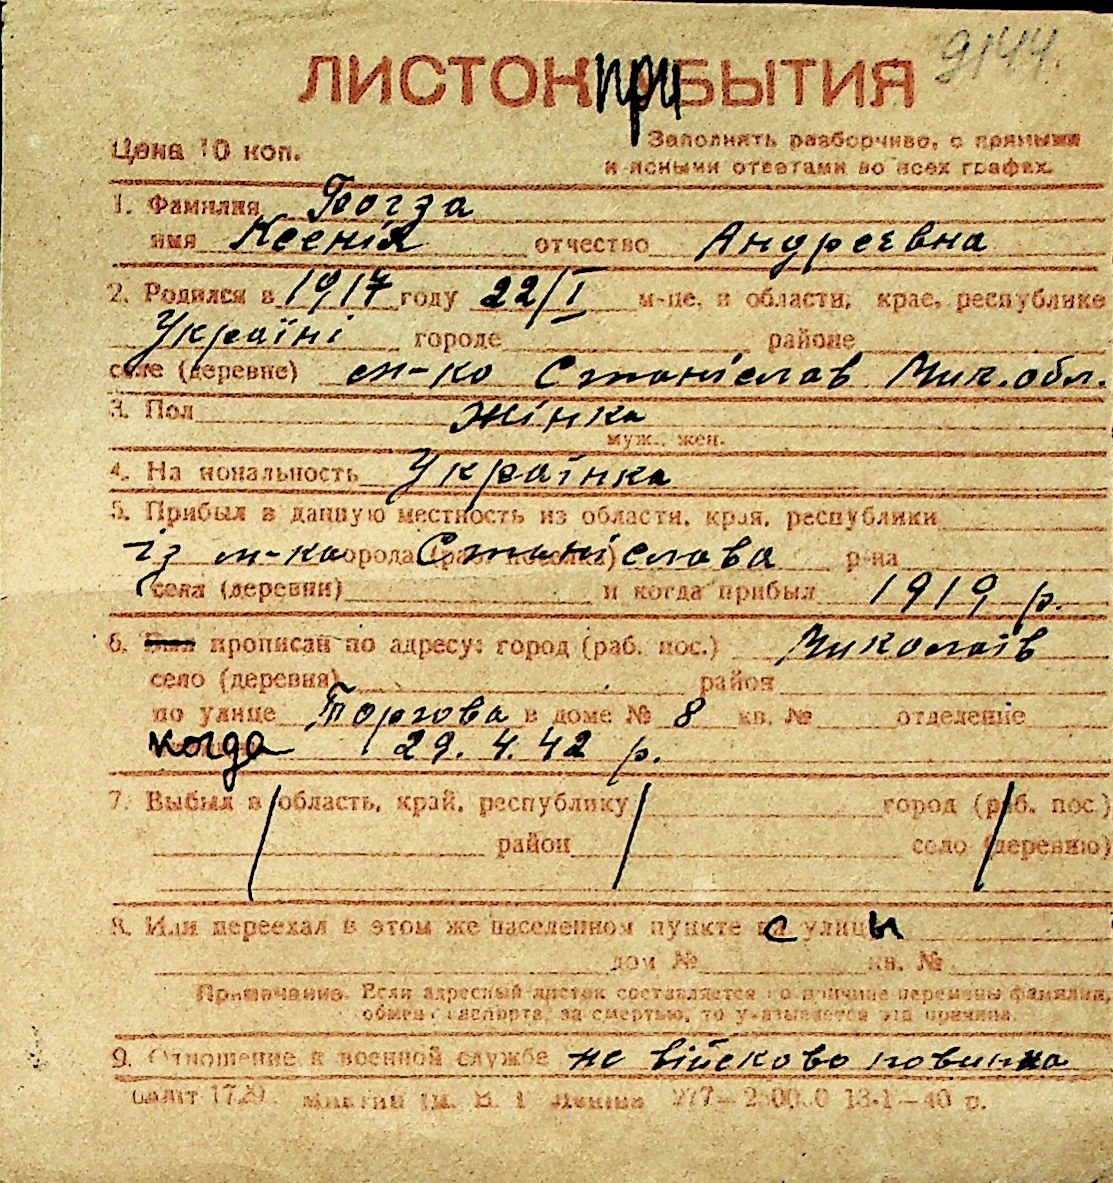 9144.
ЛИСТОК ПРИБЫТИЯ
Цена 10 коп.
Заполнять разборчиво, с прямыми
и ясными ответами во всех графах.
1. Фамилия
имя Ксенія отчество Андреевна
2. Родился в 1917 году 22/I м-це, в области, крае, республике
Україні городе районе
селе (деревне) м-ко Станіслав Мик. обл.
3. Пол Жінка
муж., жен.
4. Национальность Українка
5. Прибыл в данную местность из области, края, республики
із м-ка города (раб. поселка) Станіслава р-на
села (деревни) и когда прибыл 1919 р.
6. Был прописан по адресу: город (раб. пос.) Миколаїв
село (деревня) район
по улице Торгова в доме № 8 кв. № отделение
когда 29. 4. 42 р.
7. Выбыл в область, край, республику город (раб. пос.)
район село (деревню)
8. Или переехал в этом же населенном пункте с улицы
дом № кв. №
Примечание. Если адресный листок составляется по причине перемены фамилии,
обмена паспорта, за смертью, то указывается эта причина.
9. Отношение к военной службе не військово повинна